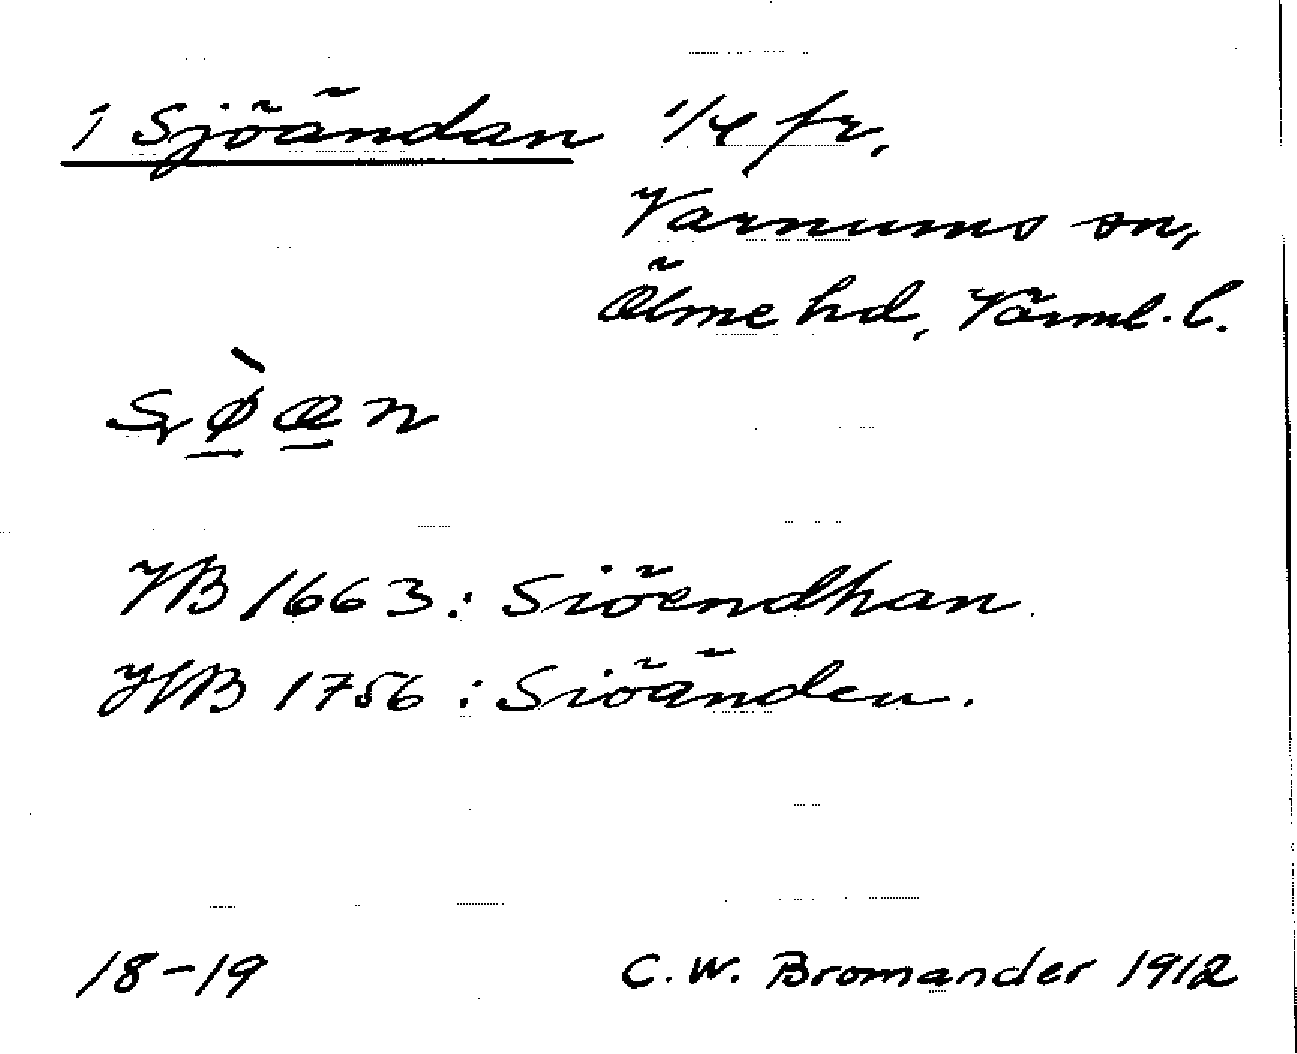 1 Sjöändan 1/4 fr.
Varnums sn,
Ölme hd, Värml. l.
JB 1663: Siöendhan.
HB 1756: Siöänden.
18-19 C. W. Bromander 1912